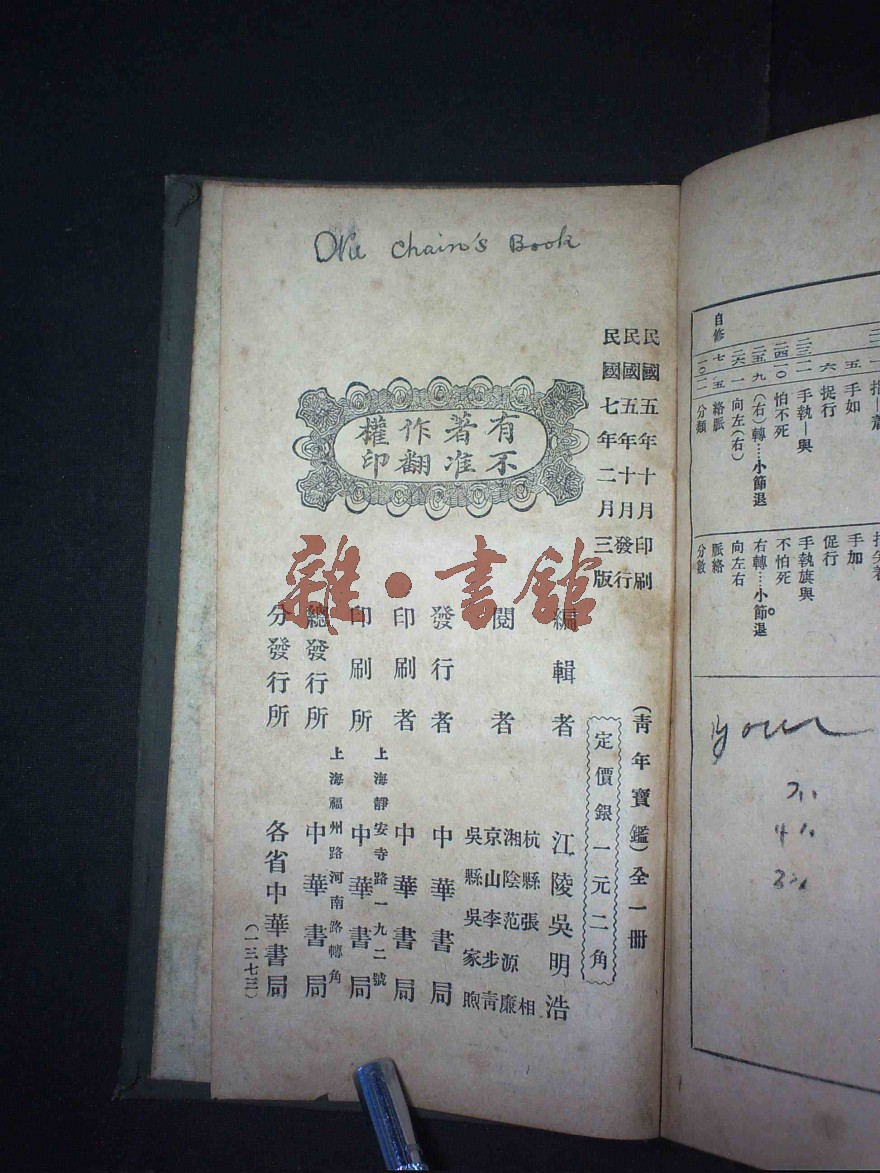 Chain's Book
民國五年十月印刷
民國五年十月發行
民國七年二月三版
有不
著准
作翻
權印
雜·書館
(青年寶鑑)全一冊
定價銀一元二角
編輯者 江陵吳明浩
閱者 杭縣張相
湘陰范源廉
京山李步青
吳縣吳家煦
發行者 中華書局
印刷者 中華書局
上海靜安寺路一九二號
印刷所 中華書局
上海福州路河南路轉角
總發行所 中華書局
分發行所 各省中華書局
(一三七三)
手如
手加
六 捉行
促行
二三二 手執—與
手執旗與
二四一〇 怕不死
不怕死
二五九 (右)轉…小節退
右轉…小節退
二六一 向左(右)
向左右
自修七五 絡脈
脈絡
一〇二 分類
分數
your